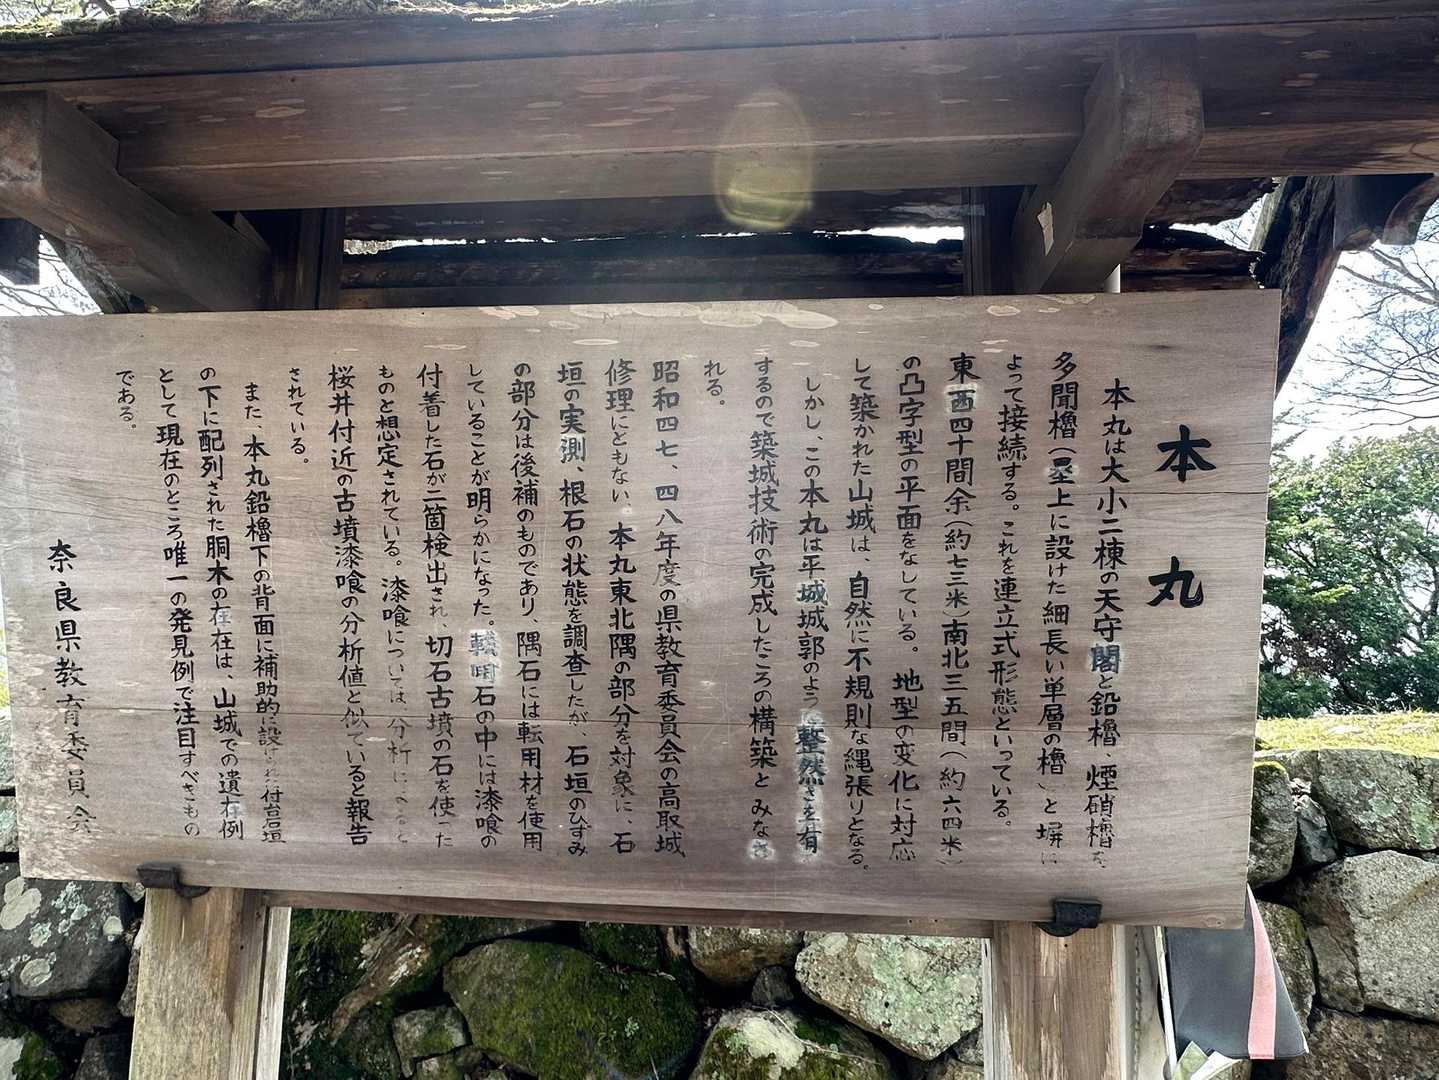 本丸
本丸は大小二棟の天守閣と鉛櫓、煙硝櫓を、
多聞櫓(塁上に設けた細長い単層の櫓)と塀に
よって接続する。これを連立式形態といっている。
東西四十間余(約七三米)南北三五間(約六四米)
の凸字型の平面をなしている。地型の変化に対応
して築かれた山城は、自然に不規則な縄張りとなる。
しかし、この本丸は平城城郭のような整然さを有
するので築城技術の完成したころの構築とみなさ
れる。
昭和四七、四八年度の県教育委員会の高取城
修理にともない。本丸東北隅の部分を対象に、石
垣の実測、根石の状態を調査したが、石垣のひずみ
の部分は後補のものであり、隅石には転用材を使用
していることが明らかになった。転用石の中には漆喰の
付着した石が二箇検出され、切石古墳の石を使った
ものと想定されている。漆喰については、分析によると
桜井付近の古墳漆喰の分析値と似ていると報告
されている。
また、本丸鉛櫓下の背面に補助的に設けられた付台石垣
の下に配列された胴木の存在は、山城での遺存例
として現在のところ唯一の発見例で注目すべきもの
である。
奈良県教育委員会